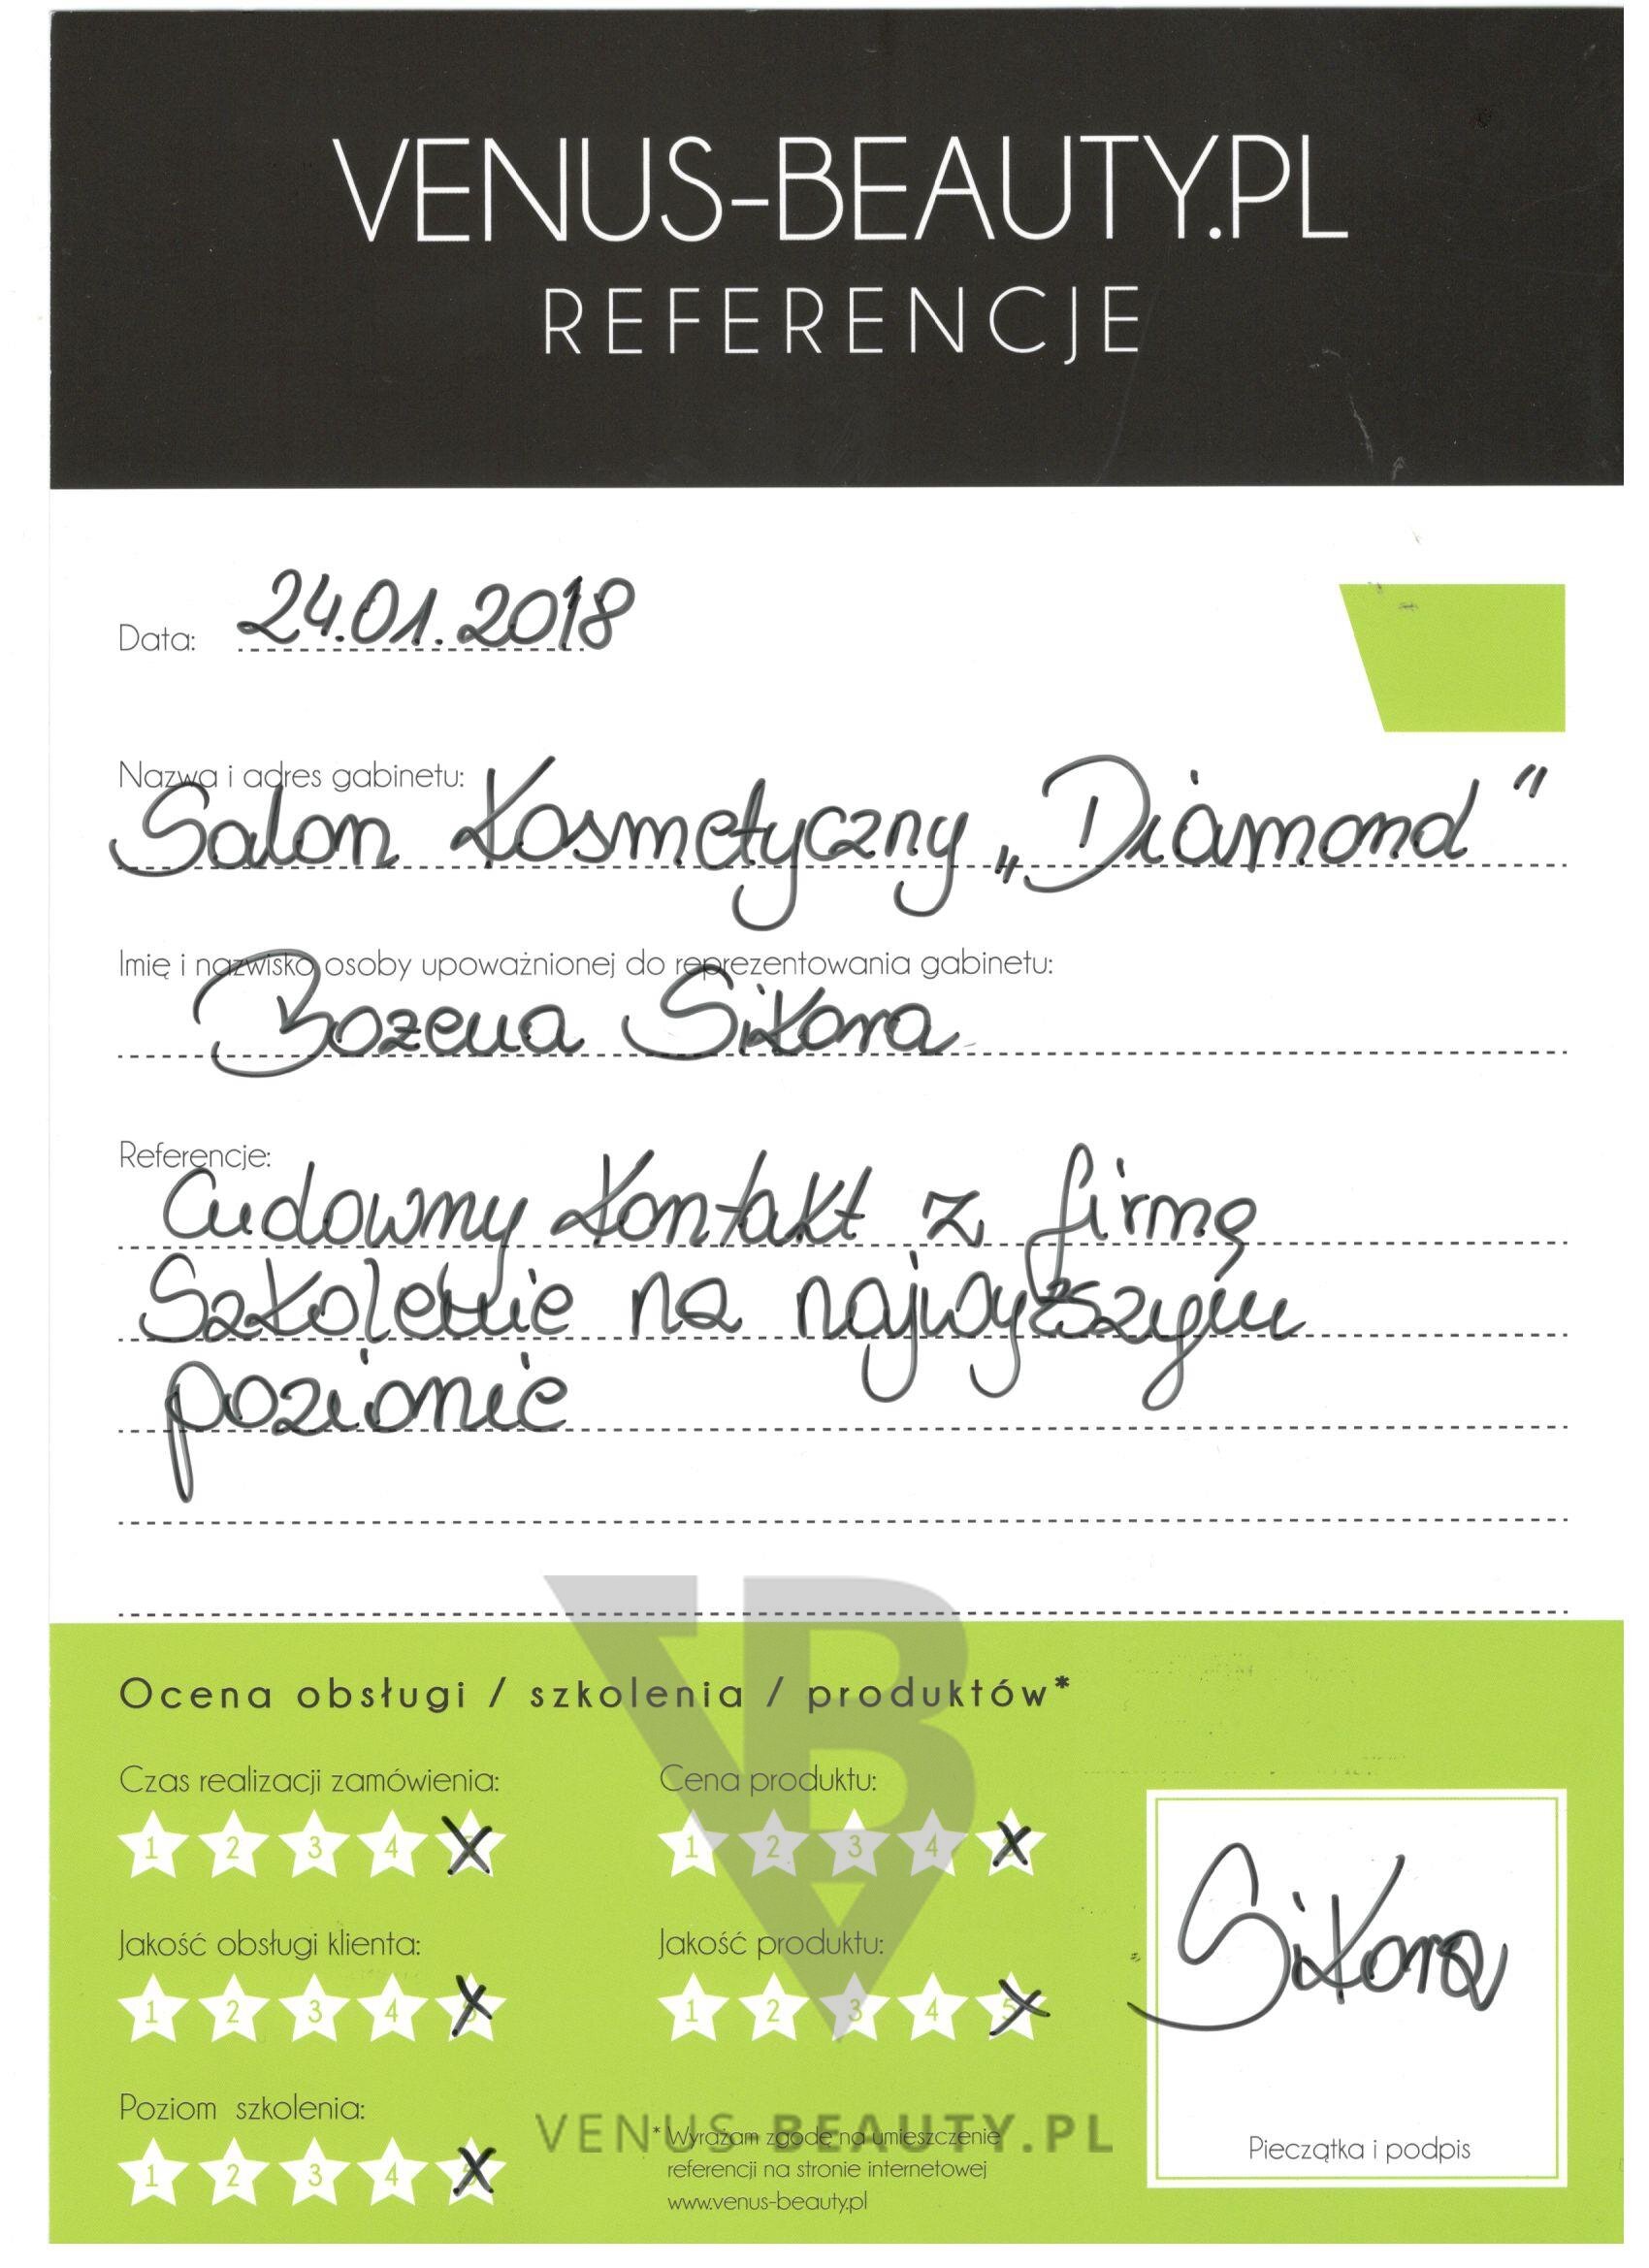 VENUS-BEAUTY.PL
REFERENCJE
Data: 24.01.2018
Nazwa i adres gabinetu:
Salon Kosmetyczny „Diamond"
Imię i nazwisko osoby upoważnionej do reprezentowania gabinetu:
Bożena Sikora
Referencje:
Cudowny kontakt z firmą
Szkolenie na najwyższym
poziomie
Ocena obsługi / szkolenia / produktów*
Czas realizacji zamówienia:
1 2 3 4 5
Cena produktu:
1 2 3 4 5
Jakość obsługi klienta:
1 2 3 4 5
Jakość produktu:
1 2 3 4 5
Sikora
Poziom szkolenia:
1 2 3 4 5
VENUS-BEAUTY.PL
* Wyrażam zgodę na umieszczenie
referencji na stronie internetowej
www.venus-beauty.pl
Pieczątka i podpis